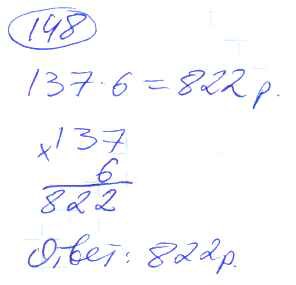 148
137·6=822р.
×137
6
822
Ответ: 822р.